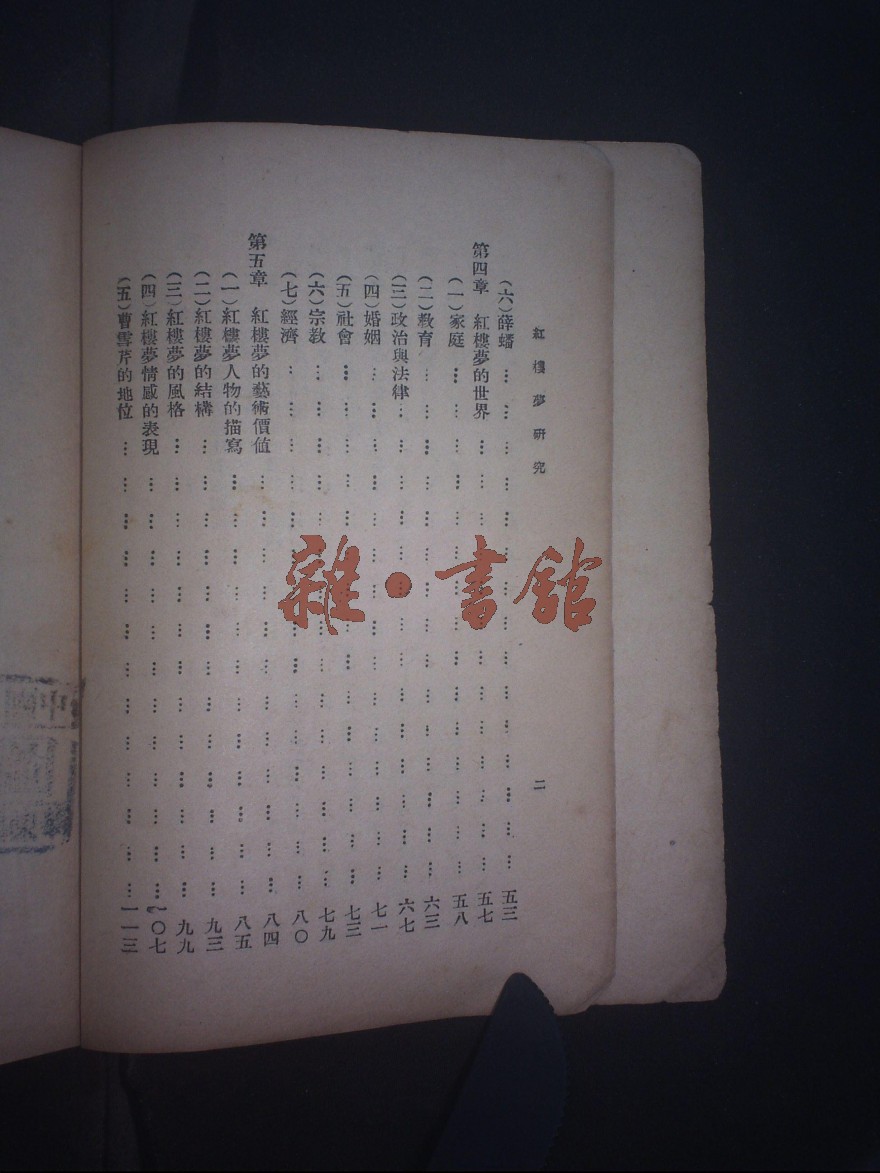 紅樓夢研究
二
（六）薛蟠……五三
第四章　紅樓夢的世界……五七
（一）家庭……五八
（二）教育……六三
（三）政治與法律……六七
（四）婚姻……七一
（五）社會……七三
（六）宗教……七九
（七）經濟……八〇
第五章　紅樓夢的藝術價值……八四
（一）紅樓夢人物的描寫……八五
（二）紅樓夢的結構……九三
（三）紅樓夢的風格……九九
（四）紅樓夢情感的表現……一〇七
（五）曹雪芹的地位……一一三
雜·書館